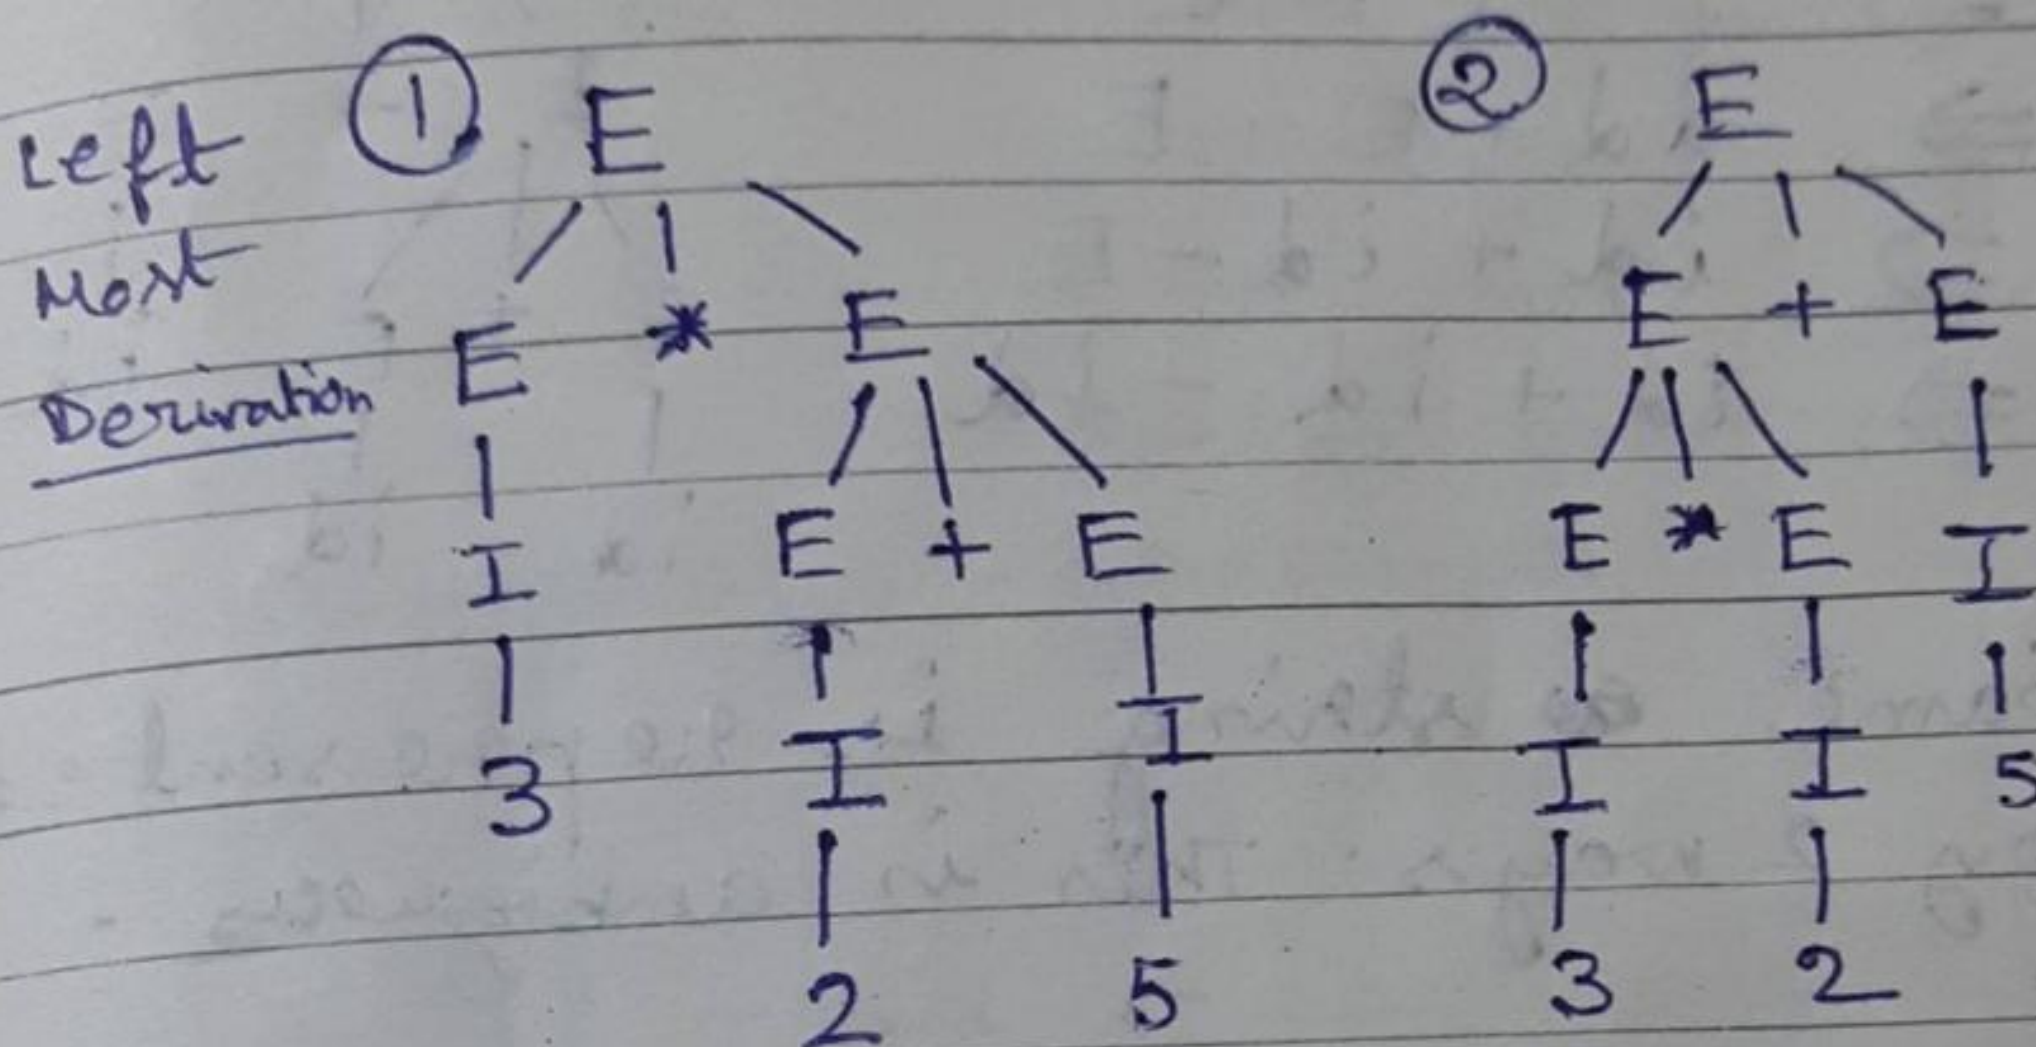 Left
Most
Derivation
① E
E * E
I E + E
3 I I
2 5
② E
E + E
E * E I
I I 5
3 2